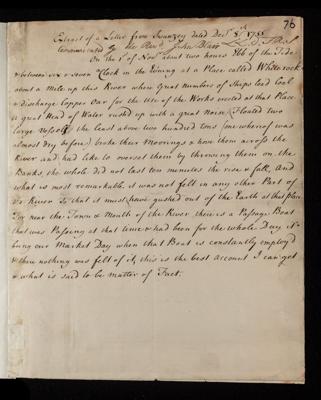 76
Extract of a Letter from Swanzey dated Decr 8th 1755
Communicated by the Revd John Blair
On the 1st of Novr about two hours Ebb of the Tide
& between six & seven o'Clock in the Evening at a Place called Whiterock
about a Mile up this River where Great numbers of Ships load Coal
& discharge Copper Oar for the Use of the Works erected at that Place
a great Head of Water rushed up with a great Noise, Floated two
large Vessels the least above two hundred tons (one whereof was
almost dry before) broke their Moorings & hove them across the
River and had like to overset them by throwing them on the
Banks, the whole did not last ten menutes the rise & fall, And
what is most remarkable, it was not felt in any other Part of
the River So that it must have gushed out of the Earth at that place
For near the Town & Mouth of the River there is a Passage Boat
that was Passing at that time & had been for the whole Day it
being our Market Day when that Boat is constantly employ'd
& there nothing was felt of it, this is the best account I can get
& what is said to be matter of Fact.